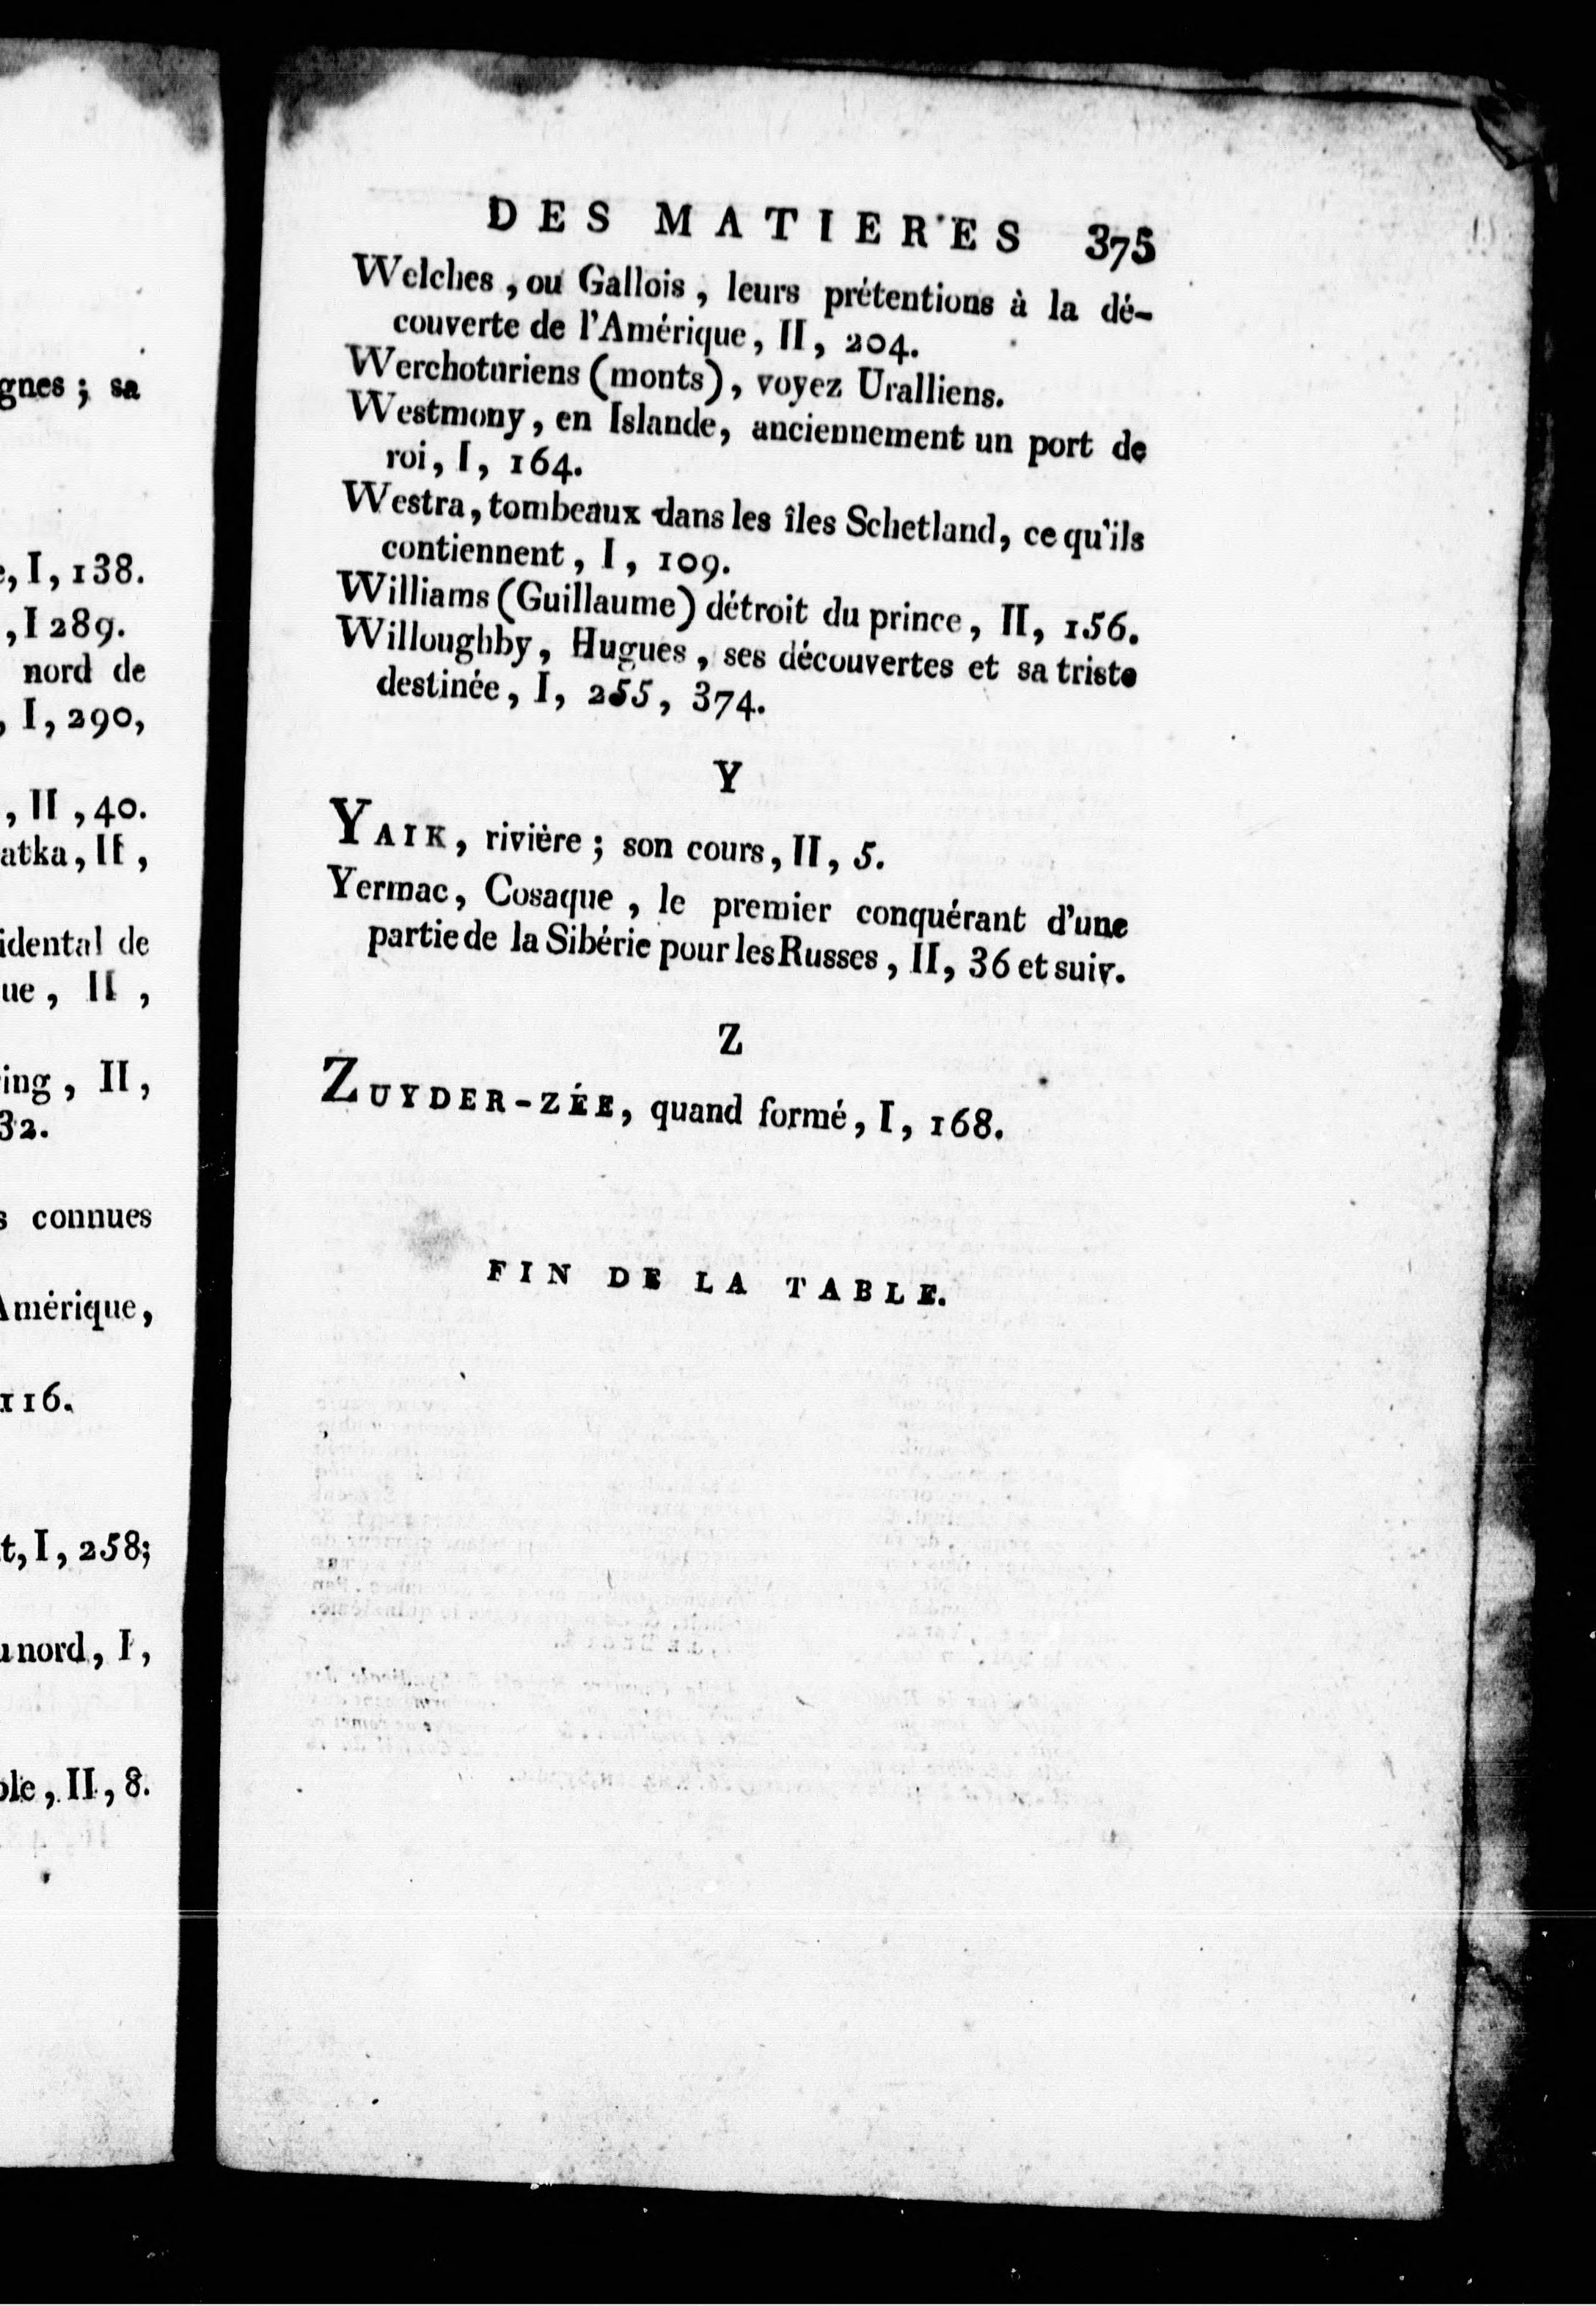 gnes ; sa
, I, 138.
, I 289.
nord de
, I, 290,
, II, 40.
atka, II,
idental de
ue, II,
ing, II,
32.
s connues
Amérique,
116.
t, I, 258;
u nord, I,
ole, II, 8.
DES MATIERES 375
Welches, ou Gallois, leurs prétentions à la dé-
couverte de l'Amérique, II, 204.
Werchoturiens (monts), voyez Uralliens.
Westmony, en Islande, anciennement un port de
roi, I, 164.
Westra, tombeaux dans les îles Schetland, ce qu'ils
contiennent, I, 109.
Williams (Guillaume) détroit du prince, II, 156.
Willoughby, Hugues, ses découvertes et sa triste
destinée, I, 255, 374.
Y
YAIK, rivière; son cours, II, 5.
Yermac, Cosaque, le premier conquérant d'une
partie de la Sibérie pour les Russes, II, 36 et suiv.
Z
ZUYDER-ZÉE, quand formé, I, 168.
FIN DE LA TABLE.